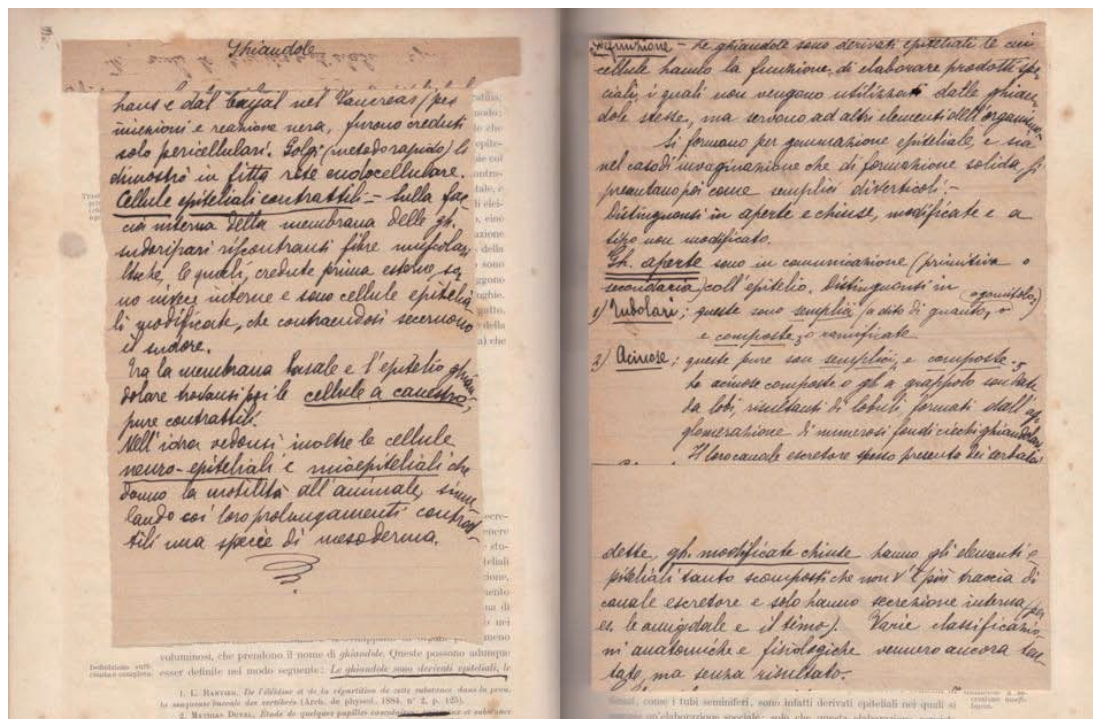 Ghiandole
hans e dal Cayal nel Pancreas/per
iniezioni e reazione nera, furono creduti
solo pericellulari. Golgi (metodo rapido) li
dimostrò in fitta rete endocellulare.
Cellule epiteliali contrattili – Sulla fac-
cia interna della membrana delle gh.
sudoripari riscontransi fibre muscolari
lische, le quali, credute prima esterne so-
no invece interne e sono cellule epitelia-
li modificate, che contraendosi secernono
il sudore.
Tra la membrana basale e l'epitelio ghian-
dolare trovansi poi le cellule a canestro,
pure contrattili.
Nell'idra vedonsi inoltre le cellule
neuro-epiteliali e mioepiteliali che
danno la motilità all'animale, simu-
lando coi loro prolungamenti contrat-
tili una specie di mesoderma.
voluminosi, che prendono il nome di ghiandole. Queste possono adunque
esser definite nel modo seguente: Le ghiandole sono derivati epiteliali, le
1. L. RANVIER. De l'éléidine et de la répartition de cette substance dans la peau,
la muqueuse buccale des vertébrés (Arch. de physiol. 1884, n° 2, p. 125).
2. MATHIAS DUVAL, Étude de quelques papilles
Definizione – Le ghiandole sono derivati epiteliali le cui
cellule hanno la funzione di elaborare prodotti spe-
ciali, i quali non vengono utilizzati dalle ghian-
dole stesse, ma servono ad altri elementi dell'organismo.
Si formano per gemmazione epiteliale, e sia
nel caso di invaginazione che di formazione solida, si
presentano poi come semplici diverticoli. –
Distinguonsi in aperte e chiuse, modificate e a
tipo non modificato.
Gh. aperte sono in comunicazione (primitiva o
secondaria) coll'epitelio. Distinguonsi in
(o gomitolo,)
1) Tubolari; queste sono semplici (a dito di guanto, o
e composte, o ramificate
2) Acinose; queste pure son semplici, e composte.
Le acinose composte o gh. a grappolo son date
da lobi, risultanti di lobuli, formati dall'ag-
glomerazione di numerosi fondi ciechi ghiandolari
Il loro canale escretore spesso presenta dei serbatoi
dette gh. modificate chiuse hanno gli elementi e-
piteliali tanto scomposti che non v'è più traccia di
canale escretore e solo hanno secrezione interna (per
es. le amigdale e il timo). Varie classificazio-
ni anatomiche e fisiologiche vennero ancora ten-
tate, ma senza risultato.
come i tubi seminiferi, sono infatti derivati epiteliali nei quali si